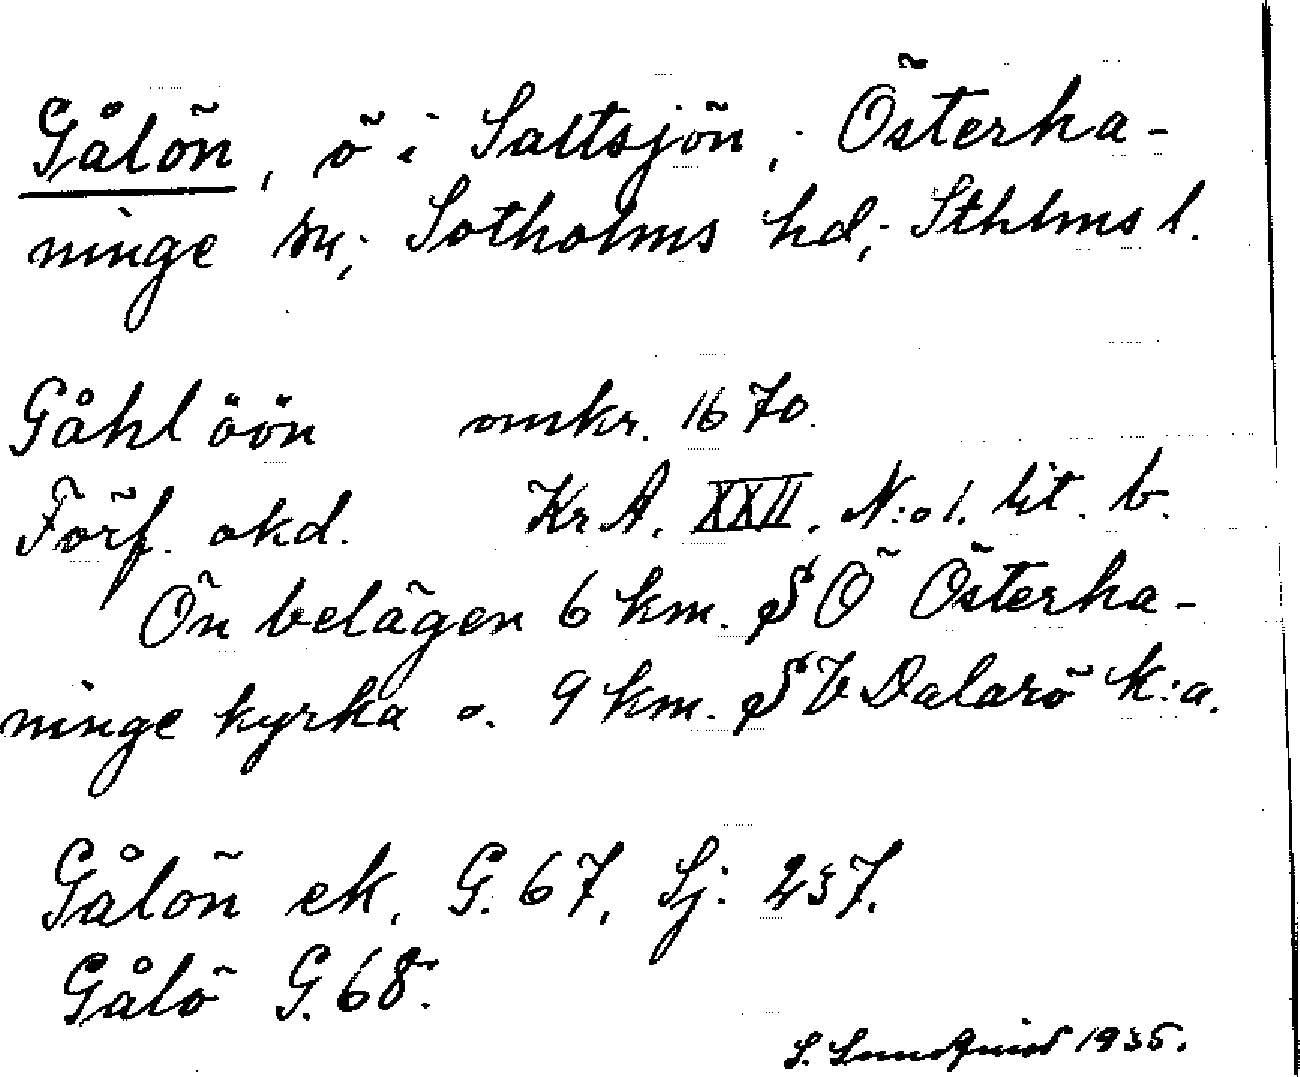 Gålön, ö i Saltsjön, Österha-
ninge sn, Sotholms hd, Sthlms l.
Gåhl öön omkr. 1670.
Förf. okd. KrA. XXII. N:o 1. lit. b.
Ön belägen 6 km. SÖ Österha-
ninge kyrka o. 9 km. SV Dalarö k:a.
Gålön ek. G. 67, Sj: 237.
Gålö G. 68.
S. Lundquist 1935.